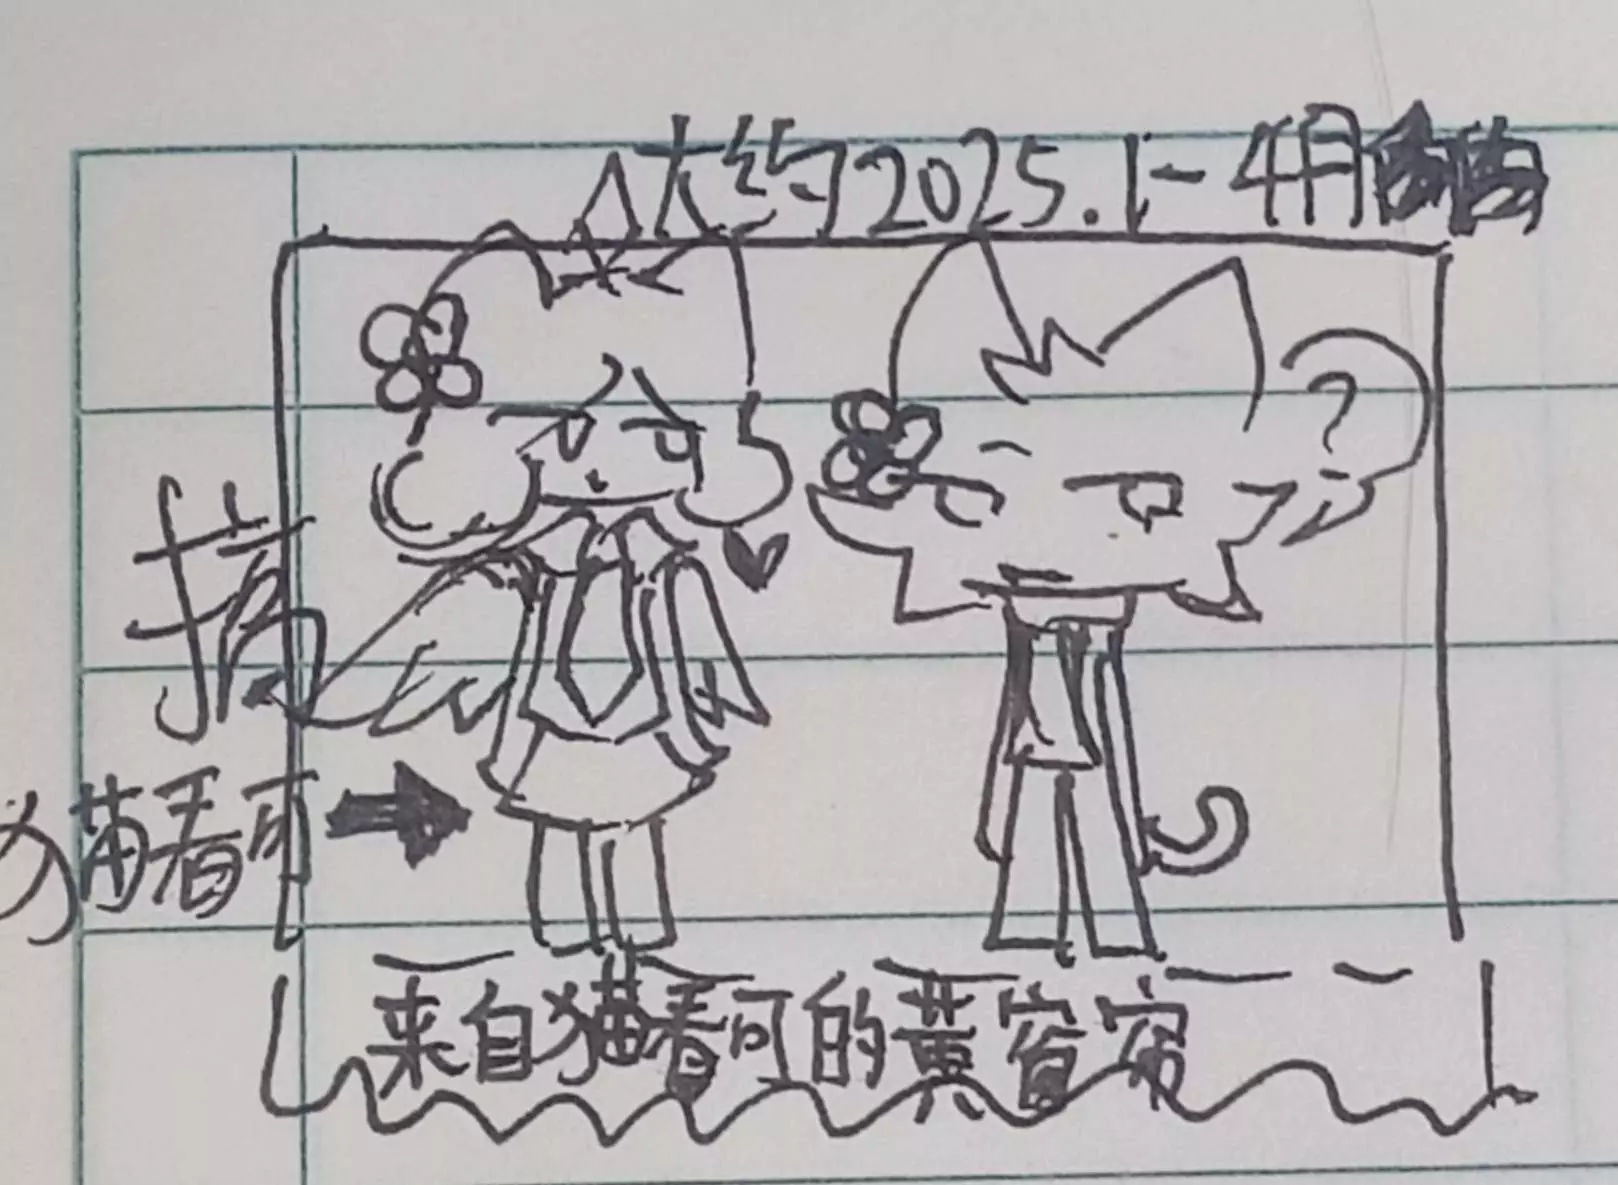 大约2025.1-4月
搞
猫看可
来自猫看可的黄宿宿
?